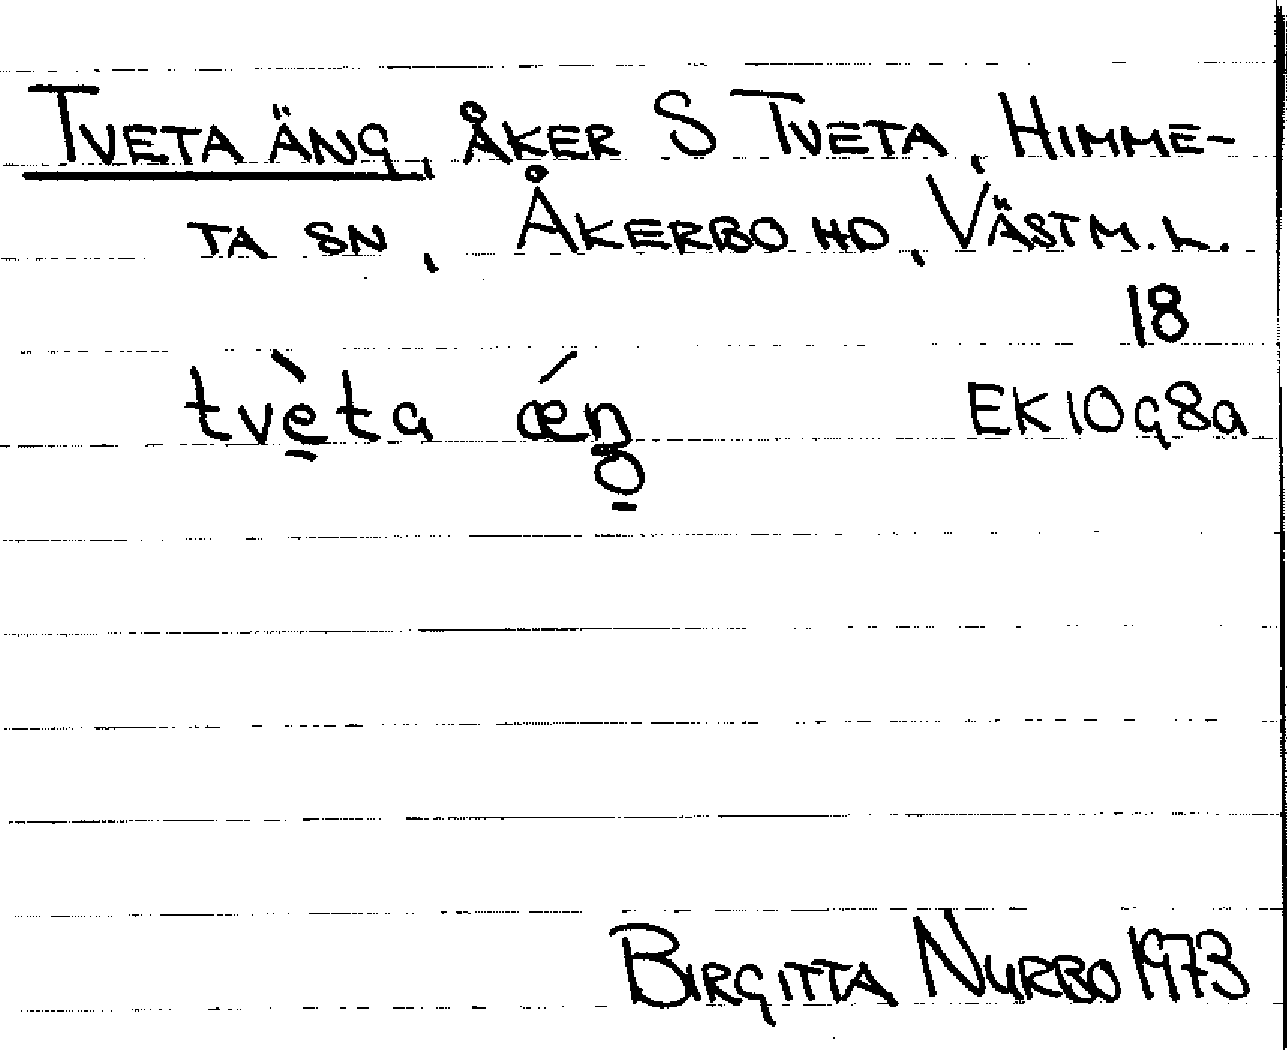 TVETA ÄNG, ÅKER S TVETA, HIMME-
TA SN, ÅKERBO HD, VÄSTM. L.
18
tvèta ǽŋ EK 10G8a
BIRGITTA NYRBO 1973